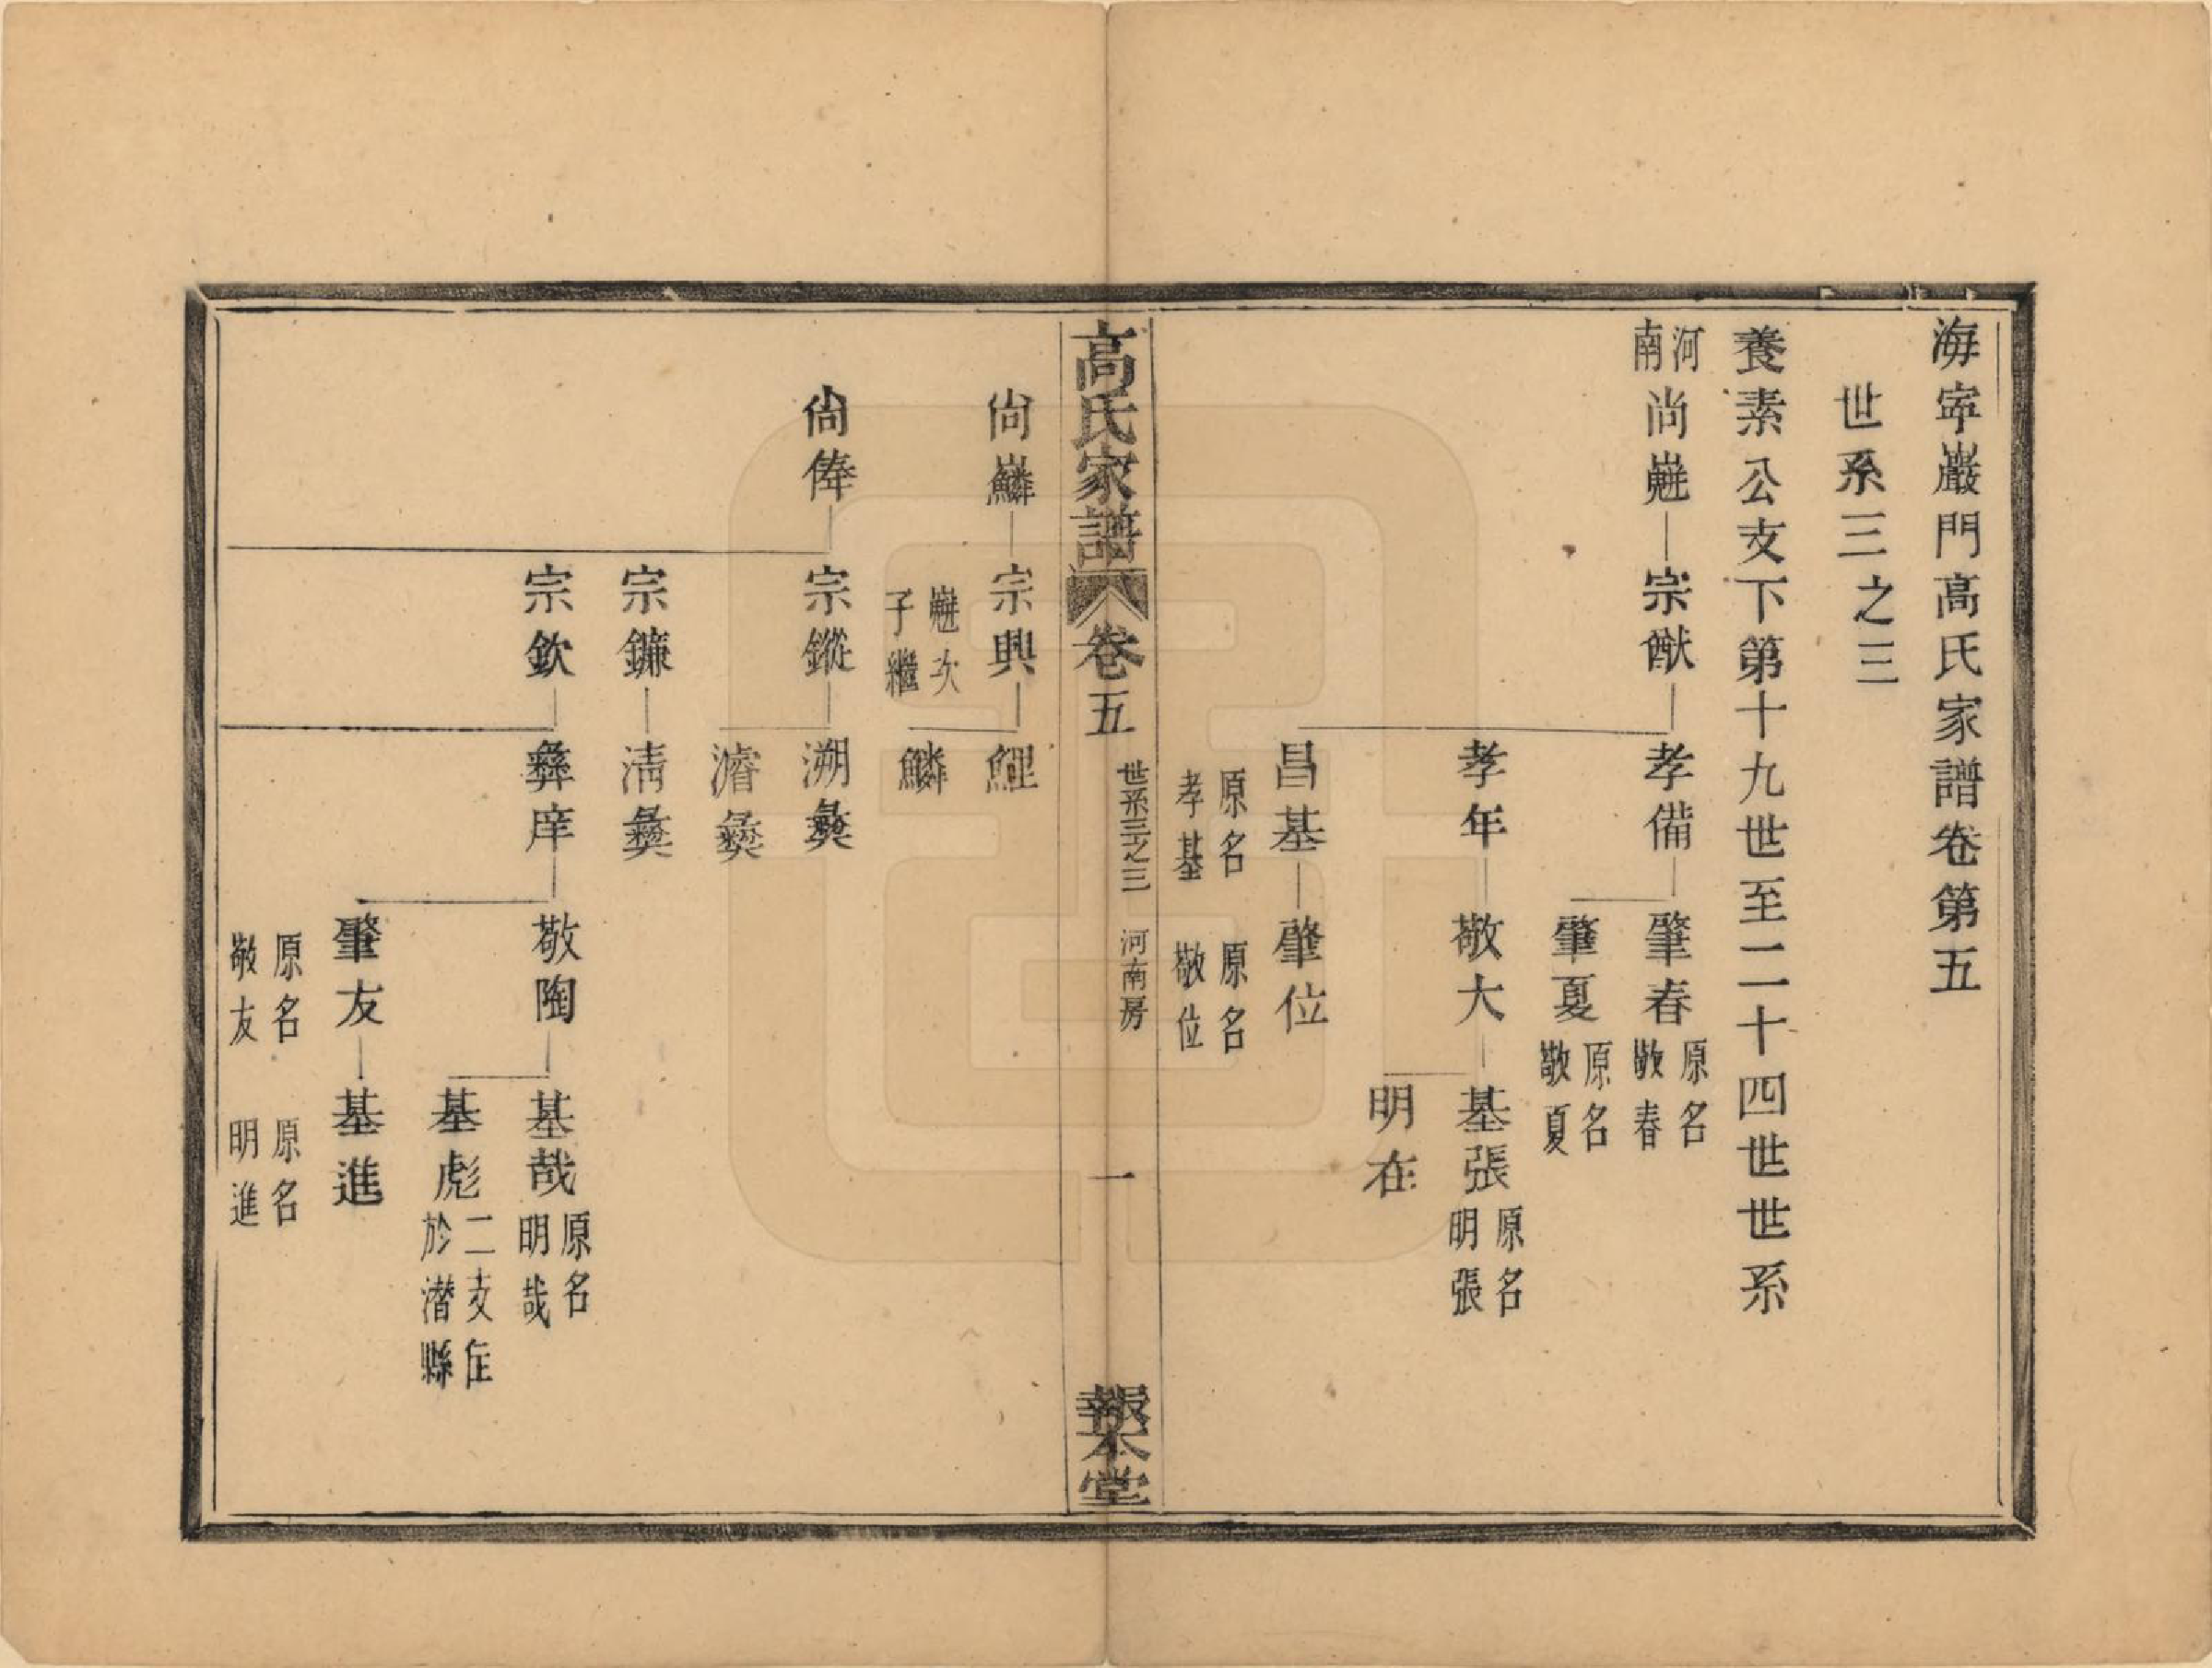 海寧巖門高氏家譜卷第五
世系三之三
養素公支下第十九世至二十四世世系
河南
尚兟 宗猷 孝備 肇春 原名敬春
肇夏 原名敬夏
孝年 敬大 基張 原名明張
明在
昌基 肇位
原名孝基 原名敬位
高氏家譜 卷五 世系三之三 河南房 一 報本堂
尚 宗興 鯉
次子繼 鱗
尚俸 宗鏦 溯彝
濬彝
宗鐮 清彝
宗欽 彝庠 敬陶 基哉 原名明哉
基彪 二支住於潛縣
肇友 基進
原名敬友 原名明進